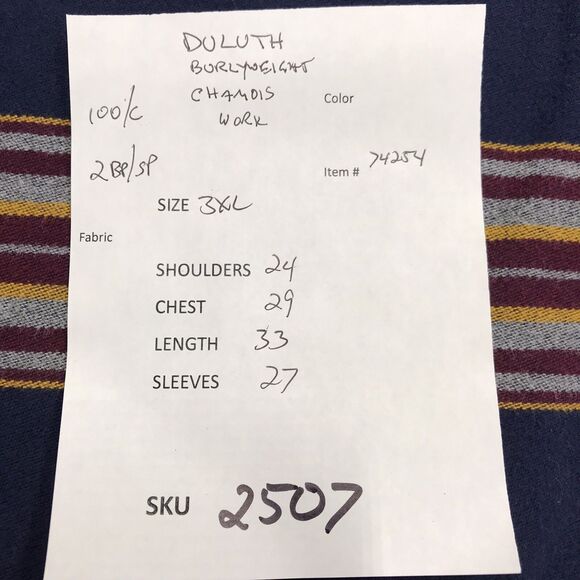 DULUTH
BURLYWEIGHT
CHAMOIS
WORK
100/C
Color
2BP/SP
Item # 74254
SIZE 3XL
Fabric
SHOULDERS 24
CHEST 29
LENGTH 33
SLEEVES 27
SKU 2507